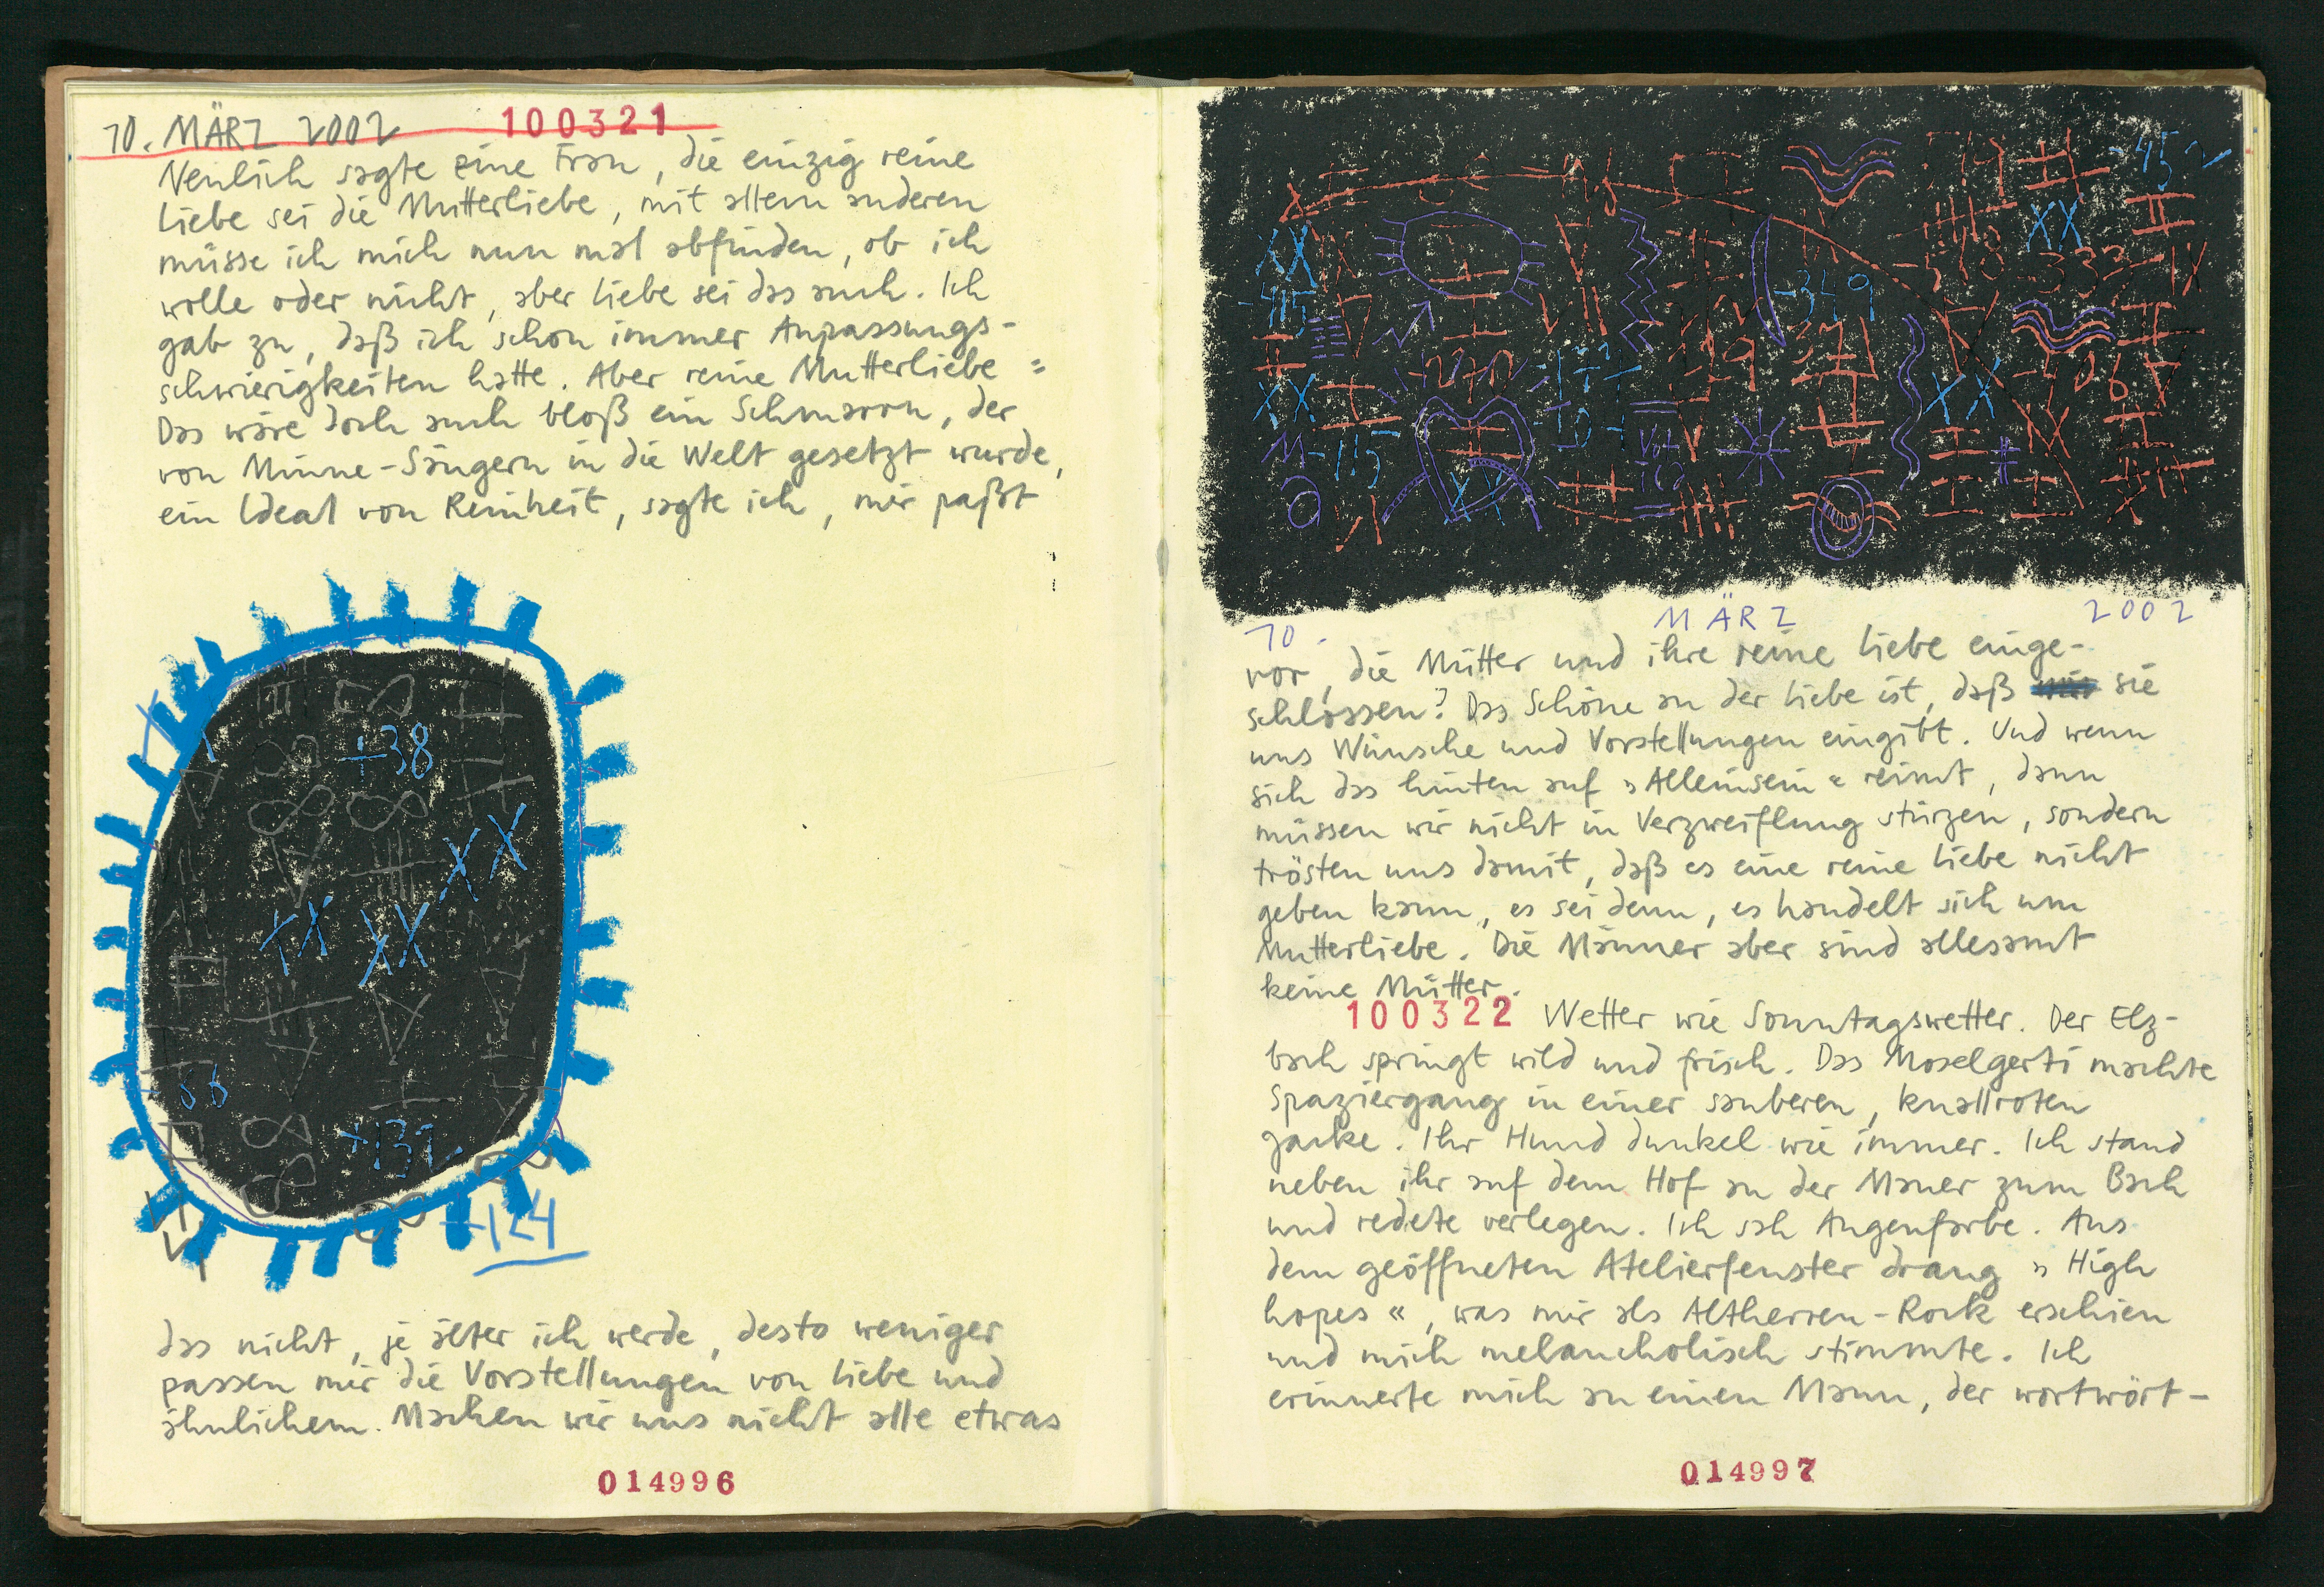 10. MÄRZ 2002 100321
Neulich sagte eine Frau, die einzig reine
Liebe sei die Mutterliebe, mit allem anderen
müsse ich mich nun mal abfinden, ob ich
wolle oder nicht, aber Liebe sei das auch. Ich
gab zu, daß ich schon immer Anpassungs-
schwierigkeiten hatte. Aber reine Mutterliebe =
Das wäre doch auch bloß ein Schmarrn, der
von Minne-Sängern in die Welt gesetzt wurde,
ein Ideal von Reinheit, sagte ich, mir paßt
+38
XX
XX XX
+131
+124
das nicht, je älter ich werde, desto weniger
passen mir die Vorstellungen von Liebe und
ähnlichem. Machen wir uns nicht alle etwas
014996
-45
XX
XX
-333
-349
-415
XX
XX
-106
-115
XX
10. MÄRZ 2002
vor, die Mütter und ihre reine Liebe einge-
schlossen? Das Schöne an der Liebe ist, daß sie
uns Wünsche und Vorstellungen eingibt. Und wenn
sich das hinten auf »Alleinsein« reimt, dann
müssen wir nicht in Verzweiflung stürzen, sondern
trösten uns damit, daß es eine reine Liebe nicht
geben kann, es sei denn, es handelt sich um
Mutterliebe. Die Männer aber sind allesamt
keine Mütter.
100322 Wetter wie Sonntagswetter. Der Elz-
bach springt wild und frisch. Das Moselgerti machte
Spaziergang in einer sauberen, knallroten
Jacke. Ihr Hund dunkel wie immer. Ich stand
neben ihr auf dem Hof an der Mauer zum Bach
und redete verlegen. Ich sah Augenfarbe. Aus
dem geöffneten Atelierfenster drang »High
hopes«, was mir als Altherren-Rock erschien
und mich melancholisch stimmte. Ich
erinnerte mich an einen Mann, der wortwört-
014997